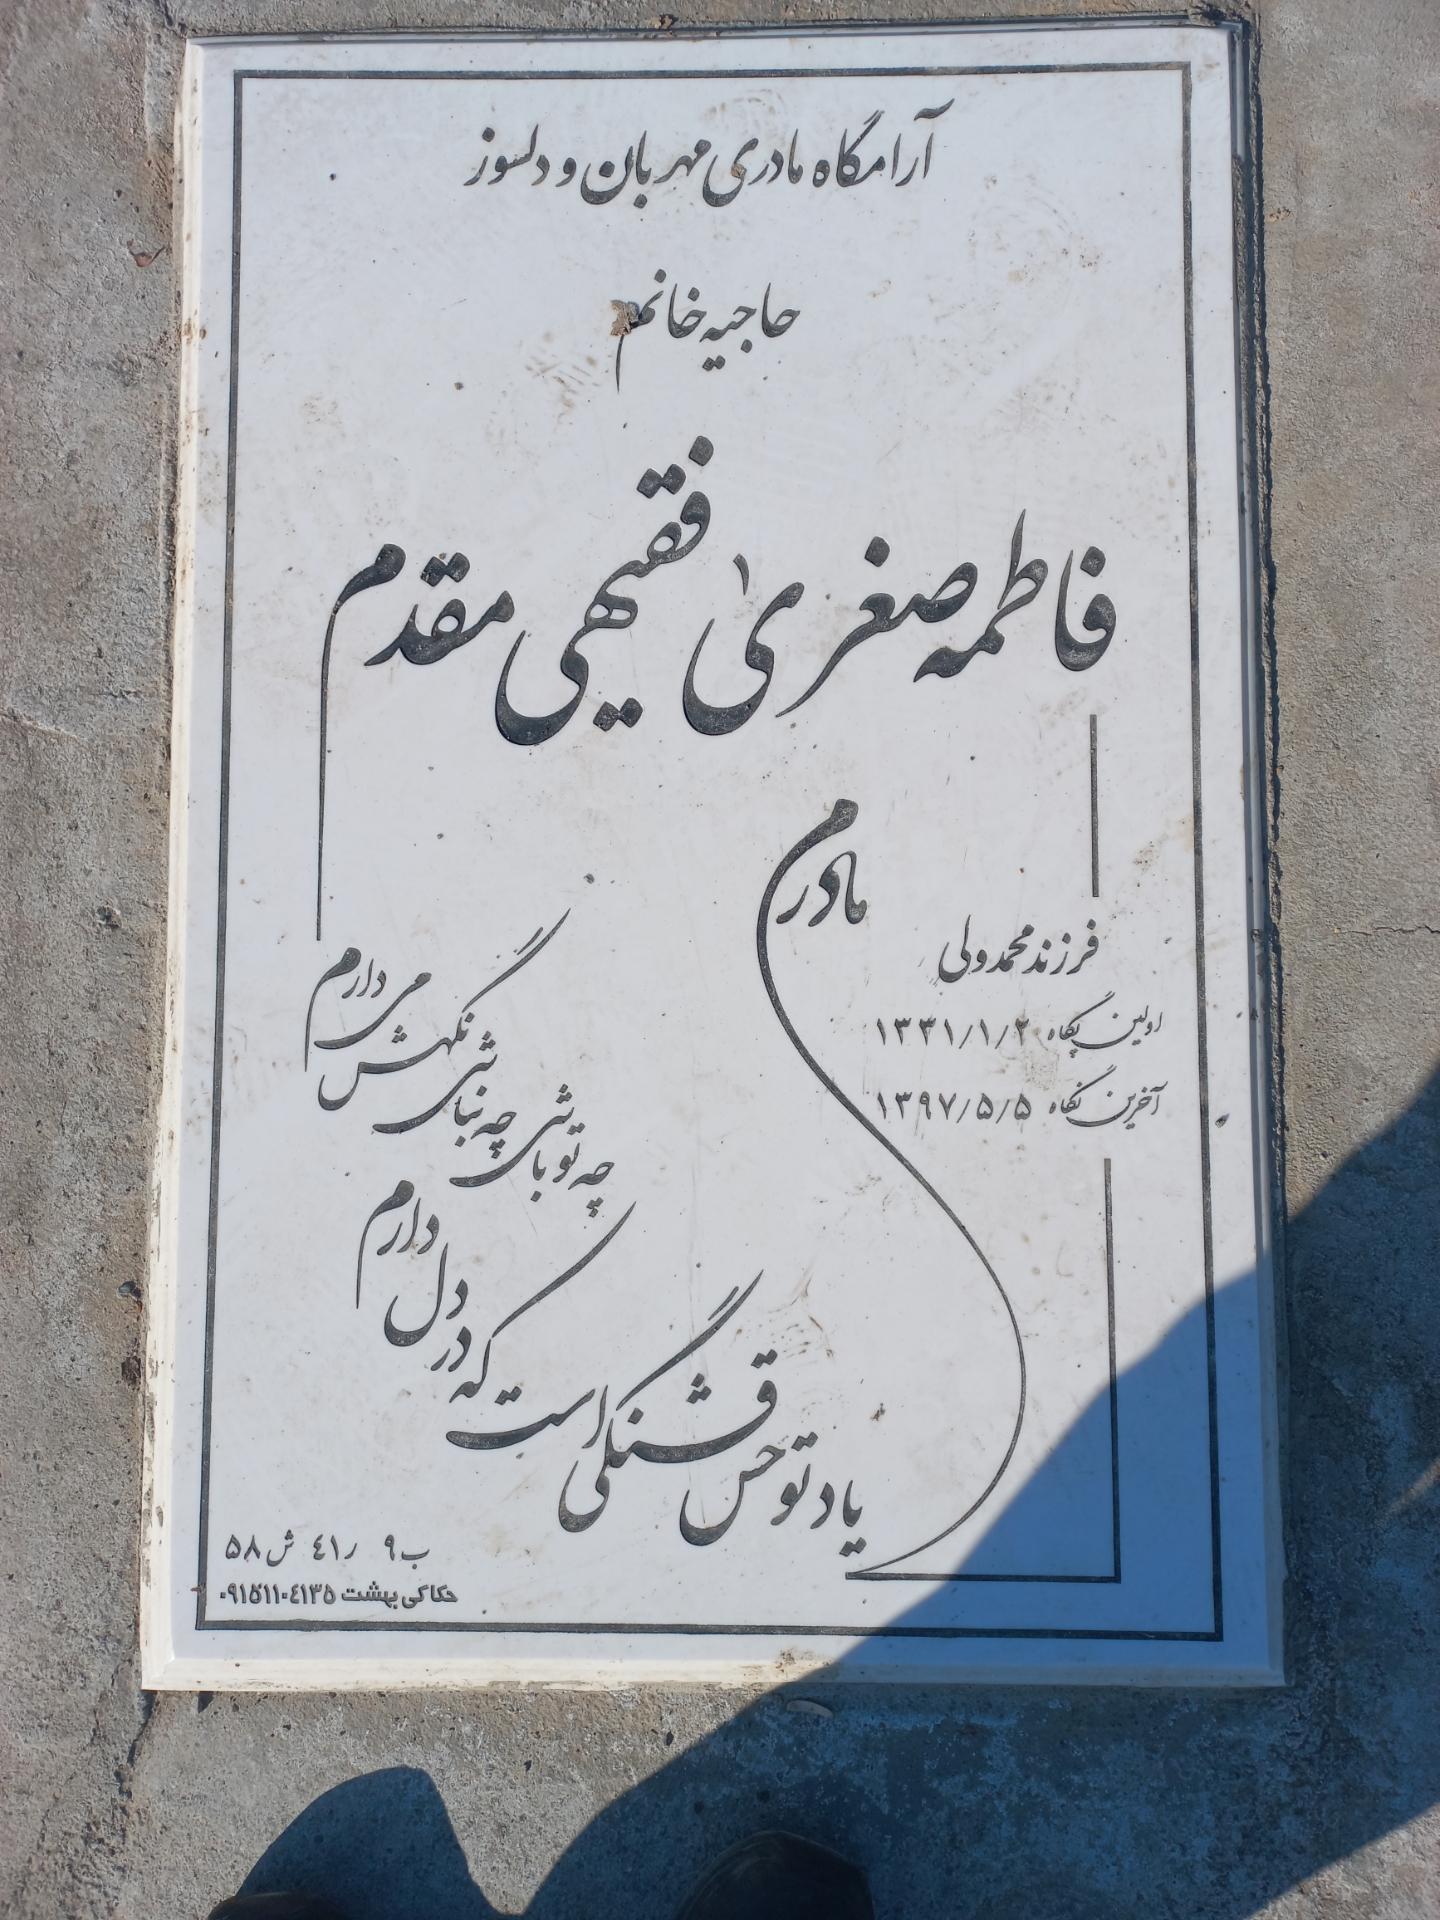 آرامگاه مادری مهربان و دلسوز
حاجیه خانم
فاطمه صغریٰ فقیهی مقدم
فرزند محمدولی
اولین پگاه ۱۳۳۱/۱/۲
آخرین نگاه ۱۳۹۷/۵/۵
مادرم
یاد تو حس قشنگی است که در دل دارم
چه تو باشی چه نباشی نگهش می دارم
ب ۹ ر ۴۱ ش ۵۸
حکاکی بهشت ۰۹۱۵۱۱۰۴۱۳۵